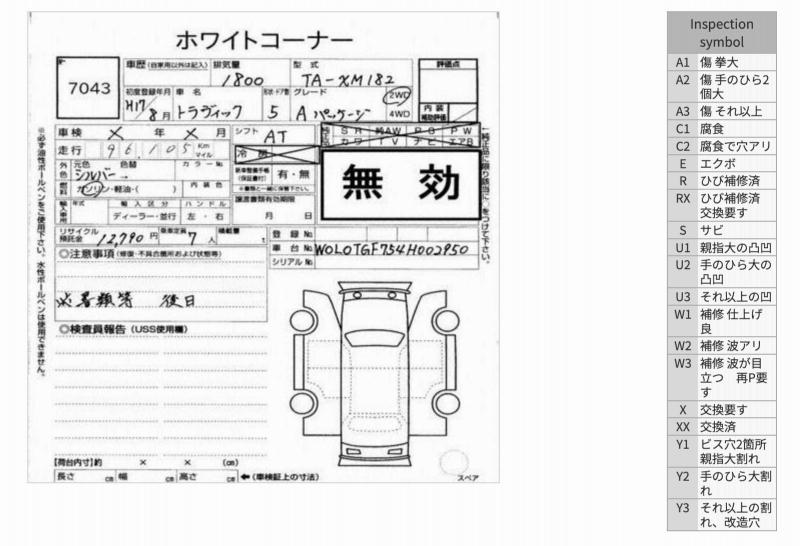 ホワイトコーナー
7043
車歴 (自家用以外は記入)
排気量
型式
評価点
1800
TA-XM182
初度登録年月
車名
ドア数
グレード
2WD
H17/8月
トラヴィック
5
Aパッケージ
4WD
内装
補助評価
車検 X 年 X 月
シフト
AT
SR 純AW PS PW
カワ TV ナビ エアB
走行
96,105
Km
マイル
冷房
外色
元色
色替
カラーNo
シルバー→
有・無
※書類と一緒に保管下さい。
燃料
ガソリン・軽油・( )
内装色
譲渡書類有効期限
月 日
無効
輸入車用
年式
輸入区分
ハンドル
ディーラー・並行
左・右
リサイクル預託金
12,790円
乗車定員
7人
積載量
t
登録No.
車台No.
W0L0TGF754H002950
シリアルNo.
◎注意事項 (修復・不具合箇所および状態等)
※書類等 後日
◎検査員報告 (USS使用欄)
※必ず油性ボールペンをご使用下さい。水性ボールペンは使用できません。
【荷台内寸】約 × × (cm)
長さ cm 幅 cm 高さ cm ←(車検証上の寸法)
スペア
Inspection symbol
A1 傷 拳大
A2 傷 手のひら2個大
A3 傷 それ以上
C1 腐食
C2 腐食で穴アリ
E エクボ
R ひび補修済
RX ひび補修済 交換要す
S サビ
U1 親指大の凸凹
U2 手のひら大の凸凹
U3 それ以上の凹
W1 補修 仕上げ良
W2 補修 波アリ
W3 補修 波が目立つ 再P要す
X 交換要す
XX 交換済
Y1 ビス穴2箇所 親指大割れ
Y2 手のひら大割れ
Y3 それ以上の割れ、改造穴